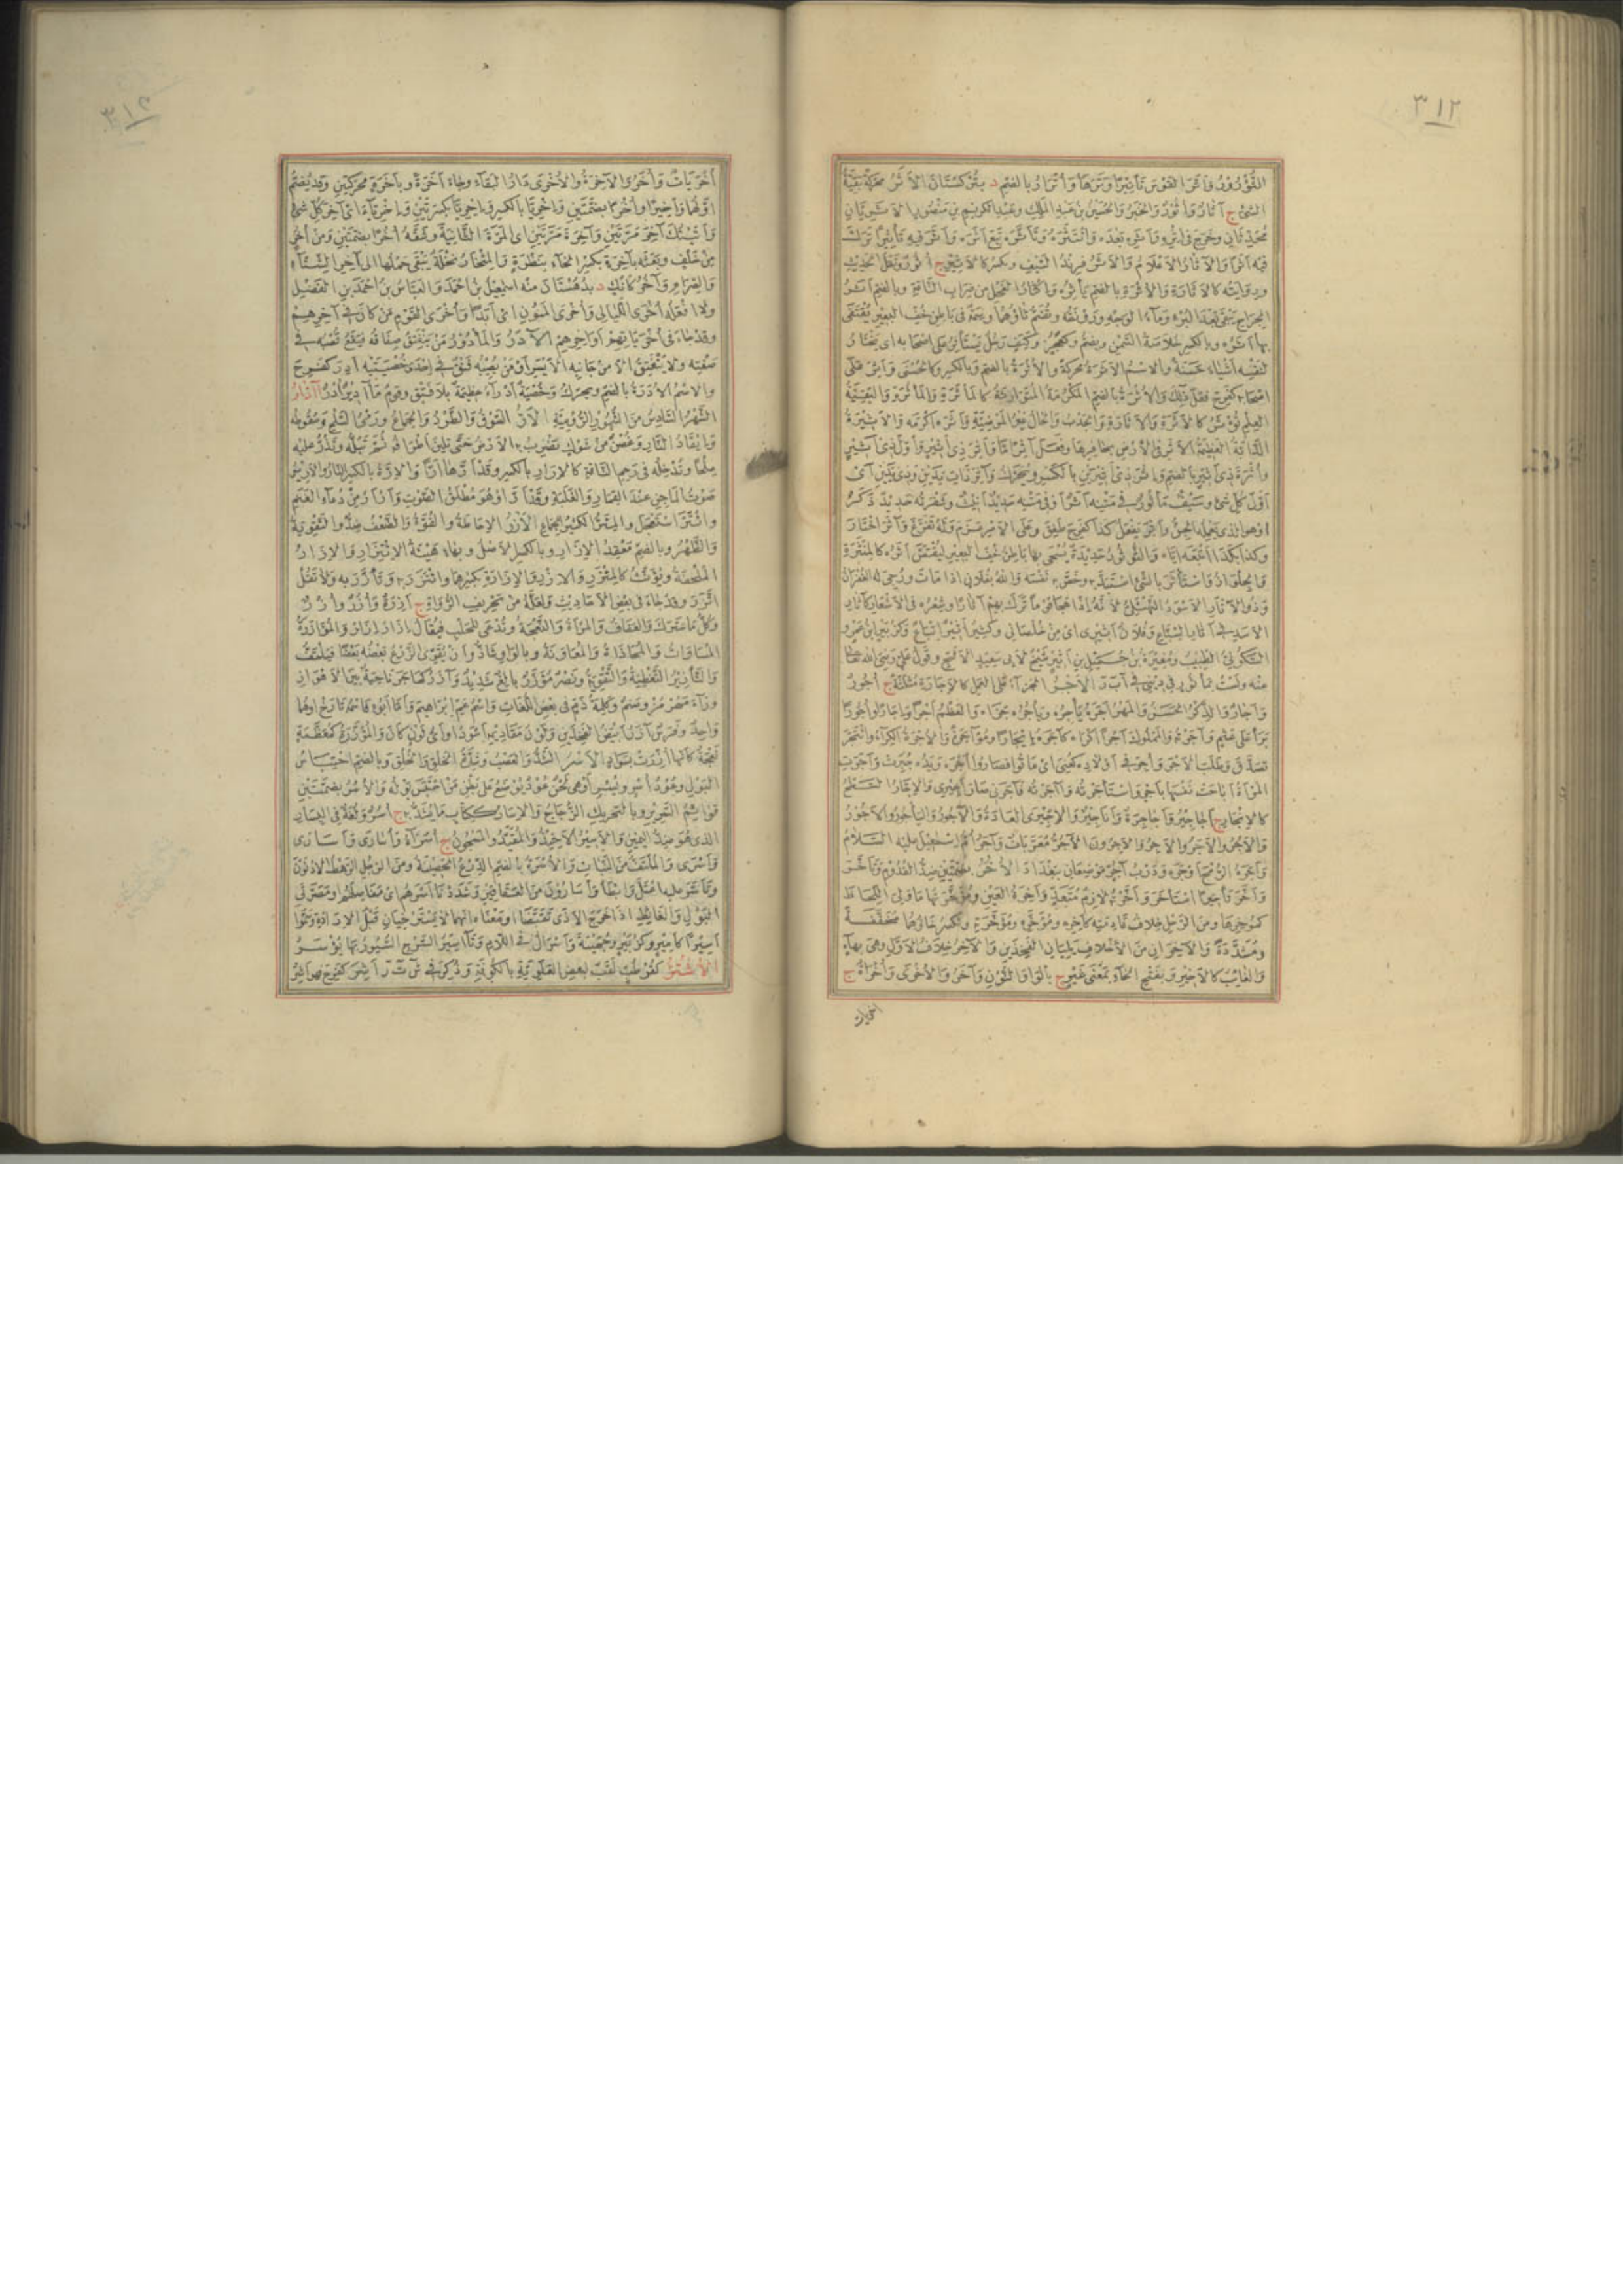 ٣١٢
التؤرور وأتر القوس تأتيرا وترها وأترار بالضم د بتركستان الأثر محركة بقية
الشئ ج آثار وأثور والخبر والحسين بن عبد الملك وعبد الكريم بن منصور الأثريان
محدثان وخرج في إثره وأثره بعده وائتثره وتأثره تبع أثره وأثر فيه تأثيرا ترك
فيه أثرا والآثار الأعلام والأثر فرند السيف ويكسر كالأثير ج أثور ونقل الحديث
وروايته كالأثارة والأثرة بالضم يأثره وإكثار الفحل من ضراب الناقة وبالضم أثر
الجراح يبقى بعد البرء وماء الوجه ورونقه وتضم ثاؤهما وسمة في باطن خف البعير يقتفى
بها أثره وبالكسر خلاصة السمن ويضم وكعجز وكتف رجل يستأثر على أصحابه أي يختار
لنفسه أشياء حسنة والاسم الأثرة محركة والأثرة بالضم وبالكسر وكالحسنى وأثر على
أصحابه كفرح فعل ذلك والأثرة بالضم المكرمة المتوارثة كالمأثرة والمأثرة والبقية من
العلم تؤثر كالأثرة والأثارة والجدب والحال غير المرضية وآثره أكرمه والأثيرة
الدابة العظيمة الأثر في الأرض بحافرها وفعل آثرا ما وآثر ذي أثير وأول ذي أثير
وأثرة ذي أثير بالضم وإثر ذي أثيرين بالكسر ويحرك وآثر ذات يدين وذي يدين أي
أول كل شئ وسيف مأثور في متنه أثر أو متنه حديد أنيث وشفرته حديد ذكر
أو هو الذي يعمله الجن وأثر يفعل كذا كفرح طفق وعلى الأمر عزم وله تفرغ وآثر اختار
وكذا بكذا أتبعه إياه والتؤثور حديدة يسحى بها باطن خف البعير ليقتص أثره كالمئثرة
والجلواز واستأثر بالشئ استبد به وخص به نفسه والله بفلان إذا مات ورجي له الغفران
وذو الآثار الأسود النهشلي لأنه إذا هجا قوما ترك بهم آثارا وشعره في الأشعار كآثار
الأسد في آثار السباع وفلان أثيري أي من خلصاني وكثير أثير إتباع وكزبير ابن عمرو
السكوني الطبيب ومغيرة بن جميل بن أثير شيخ لأبي سعيد الأشج وقول علي رضي الله
عنه ولست بمأثور في ديني في أ ب ر الأجر الجزاء على العمل كالإجارة مثلثة ج أجور
وآجار والذكر الحسن والمهر أجره يأجره ويأجره جزاه والعظم أجرا وإجارا وأجورا
برأ على عثم وآجرته والمملوك أجرا أكراه كآجره إيجارا ومؤاجرة والأجرة الكراء وائتجر
تصدق وطلب الأجر وأجر في أولاده كعني أي ماتوا فصاروا أجره ويده جبرت وآجرت
المرأة أباحت نفسها بأجر واستأجرته وآجرته فآجرني صار أجيري والإجار السطح
كالإنجار ج أجاجير وأجاجرة وأناجير والإجيرى العادة والآجور واليأجور والأجور
والآجر والآجر والآجر والآجرون الآجر معربات وآجر أم إسمعيل عليه السلام
وأجره الرمح أوجره ودرب آجر موضعان ببغداد الأخر بضمتين ضد القدم وتأخر
وأخر تأخيرا استأخر وأخرته لازم متعد وآخرة العين ومؤخرتها ما ولي اللحاظ
كمؤخرها ومن الرحل خلاف قادمته كآخره ومؤخره ومؤخرته وتكسر خاؤهما مخففة
ومشددة والآخران من الأخلاف يليان الفخذين والآخر خلاف الأول وهي بهاء
والغائب كالأخير وبفتح الخاء بمعنى غير ج بالواو والنون وأخر والأخرى وأخراة ج
أخريات
٣١٢
أخريات وأخر والآخرة والأخرى دار البقاء وجاء أخرة وبأخرة محركتين وقد يضم
أولهما وأخيرا وأخرا بضمتين وإخريا بالكسر وإخريا بكسرتين وآخريا أي آخر كل شئ
وأتيتك آخر مرتين وآخرة مرتين أي المرة الثانية وشقه أخرا بضمتين ومن أخر
من خلف وبعته بأخرة بكسر الخاء بنظرة والمئخار نخلة يبقى حملها إلى آخر الشتاء
والصرام وآخر كآنك د بدهستان منه إسمعيل بن أحمد والعباس بن أحمد بن الفضيل
ولا أفعله أخرى الليالي وأخرى المنون أي أبدا وأخرى القوم من كان في آخرهم
وقد جاء في أخرياتهم أواخرهم الآدر والمأدور من ينفتق صفاقه فيقع قصبه في
صفنه ولا ينفتق إلا من جانبه الأيسر أو من يصيبه فتق في إحدى خصييه أدر كفرح
والاسم الأدرة بالضم ويحرك وخصية أدراء عظيمة بلا فتق وقوم مآدير أدر آذار
الشهر السادس من الشهور الرومية الأر السوق والطرد والجماع ورمي السلح وسقوطه
وإيقاد النار وغصن من شوك تضرب به الأرض حتى تلين أطرافه ثم تبله وتذر عليه
ملحا وتدخله في رحم الناقة كالإرار بالكسر وقد أرها أرا والإرة بالكسر النار والأرير
صوت الماجن عند القمار والغلبة وقد أر أو هو مطلق الصوت وأرأر من دعاء الغنم
وائتر استعجل والمئر الكثير الجماع الأزر الإحاطة والقوة والضعف ضد والتقوية
والظهر وبالضم معقد الإزار وبالكسر الأصل وبهاء هيئة الائتزار والإزار
الملحفة ويؤنث كالمئزر والإزر والإزارة بكسرهما وائتزر به وتأزر به ولا تقل
اتزر وقد جاء في بعض الأحاديث ولعله من تحريف الرواة ج آزرة وأزر وأزر
وكل ما سترك والعفاف والمرأة والنعجة وتدعى للحلب فيقال إزار إزار والمؤازرة
المساواة والمحاذاة والمعاونة وبالواو شاذ وأن يقوي الزرع بعضه بعضا فيلتف
والتأزير التغطية والتقوية ونصر مؤزر بالغ شديد وآزر كهاجر ناحية بين الأهواز
ورامهرمز وصنم وكلمة ذم في بعض اللغات واسم عم إبراهيم وأما أبوه فإنه تارح أو هما
واحد وفرس آزر أبيض الفخذين ولون مقاديمه أسود أو أي لون كان والمؤزرة كمعظمة
نعجة كأنها أزرت بسواد الأسر الشد والعصب وشدة الخلق والخلق وبالضم احتباس
البول وعود أسر ويسر أو هي لحن عود يوضع على بطن من احتبس بوله والأسر بضمتين
قوائم السرير وبالتحريك الزجاج والإسار ككتاب ما يشد به ج أسر ولغة في اليسار
الذي هو ضد اليمين والأسير الأخيذ والمقيد والمسجون ج أسراء وأسارى وأسارى
وأسرى والملتف من النبات والأسرة بالضم الدرع الحصينة ومن الرجل الرهط الأدنون
وتأسر عليه اعتل وأبطأ وأسارون من العقاقير وشددنا أسرهم أي مفاصلهم أو مصرتي
البول والغائط إذا خرج الأذى تقبضتا أو معناه أنهما لا تسترخيان قبل الإرادة وسموا
أسيرا كأمير وكزبير وجهينة وإسرال في اللام وتآسير السرج السيور بها يؤسر
الأشتر كفردوس لقب لبعض العلوية بالكوفة وذكر في ش ت ر أشر كفرح فهو أشر